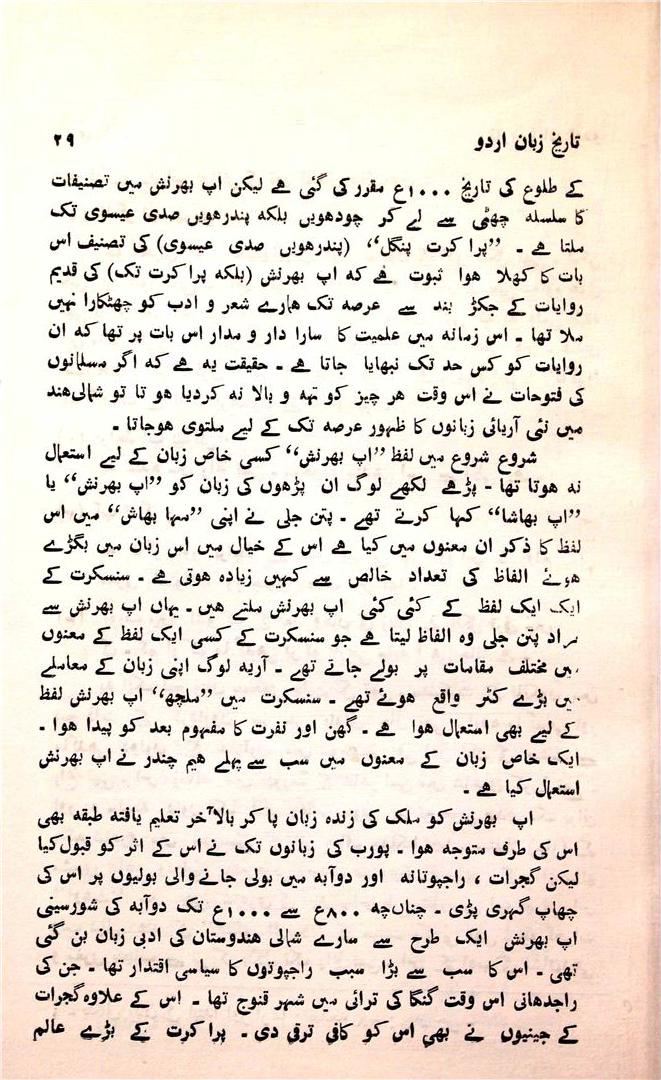 تاریخ زبان اردو
۲۹
کے طلوع کی تاریخ ۱۰۰۰ع مقرر کی گئی ہے لیکن اپ بھرنش میں تصنیفات
کا سلسلہ چھٹی سے لے کر چودھویں بلکہ پندرھویں صدی عیسوی تک
ملتا ہے ۔ ”پراکرت پنگل“، (پندرھویں صدی عیسوی) کی تصنیف اس
بات کا کھلا ہوا ثبوت ہے کہ اپ بھرنش (بلکہ پراکرت تک) کی قدیم
روایات کے جکڑ بند سے عرصہ تک ہمارے شعر و ادب کو چھٹکارا نہیں
ملا تھا ۔ اس زمانہ میں علمیت کا سارا دار و مدار اس بات پر تھا کہ ان
روایات کو کس حد تک نبھایا جاتا ہے ۔ حقیقت یہ ہے کہ اگر مسلمانوں
کی فتوحات نے اس وقت ہر چیز کو تہہ و بالا نہ کردیا ہو تا تو شمالی ہند
میں نئی آریائی زبانوں کا ظہور عرصہ تک کے لیے ملتوی ہوجاتا ۔
شروع شروع میں لفظ ”اپ بھرنش“ کسی خاص زبان کے لیے استعمال
نہ ہوتا تھا - پڑھے لکھے لوگ ان پڑھوں کی زبان کو ”اپ بھرنش“ یا
”اپ بھاشا“ کہا کرتے تھے ۔ پتن جلی نے اپنی ”مہا بھاش“ میں اس
لفظ کا ذکر ان معنوں میں کیا ہے اس کے خیال میں اس زبان میں بگڑے
ہوئے الفاظ کی تعداد خالص سے کہیں زیادہ ہوتی ہے ۔ سنسکرت کے
ایک ایک لفظ کے کئی کئی اپ بھرنش ملتے ہیں ۔ یہاں اپ بھرنش سے
مراد پتن جلی وہ الفاظ لیتا ہے جو سنسکرت کے کسی ایک لفظ کے معنوں
میں مختلف مقامات پر بولے جاتے تھے ۔ آریہ لوگ اپنی زبان کے معاملے
میں بڑے کٹر واقع ہوئے تھے ۔ سنسکرت میں ”ملچھ“ اپ بھرنش لفظ
کے لیے بھی استعمال ہوا ہے ۔ گھن اور نفرت کا مفہوم بعد کو پیدا ہوا ۔
ایک خاص زبان کے معنوں میں سب سے پہلے ہیم چندر نے اپ بھرنش
استعمال کیا ہے ۔
اپ بھرنش کو ملک کی زندہ زبان پا کر بالآخر تعلیم یافتہ طبقہ بھی
اس کی طرف متوجہ ہوا ۔ پورب کی زبانوں تک نے اس کے اثر کو قبول کیا
لیکن گجرات ، راجپوتانہ اور دوآبہ میں بولی جانے والی بولیوں پر اس کی
چھاپ گہری پڑی ۔ چناںچہ ۸۰۰ع سے ۱۰۰۰ع تک دوآبہ کی شورسینی
اپ بھرنش ایک طرح سے سارے شمالی ہندوستان کی ادبی زبان بن گئی
تھی ۔ اس کا سب سے بڑا سبب راجپوتوں کا سیاسی اقتدار تھا ۔ جن کی
راجدھانی اس وقت گنگا کی ترائی میں شہر قنوج تھا ۔ اس کے علاوہ گجرات
کے جینیوں نے بھی اس کو کافی ترقی دی ۔ پراکرت کے بڑے عالم